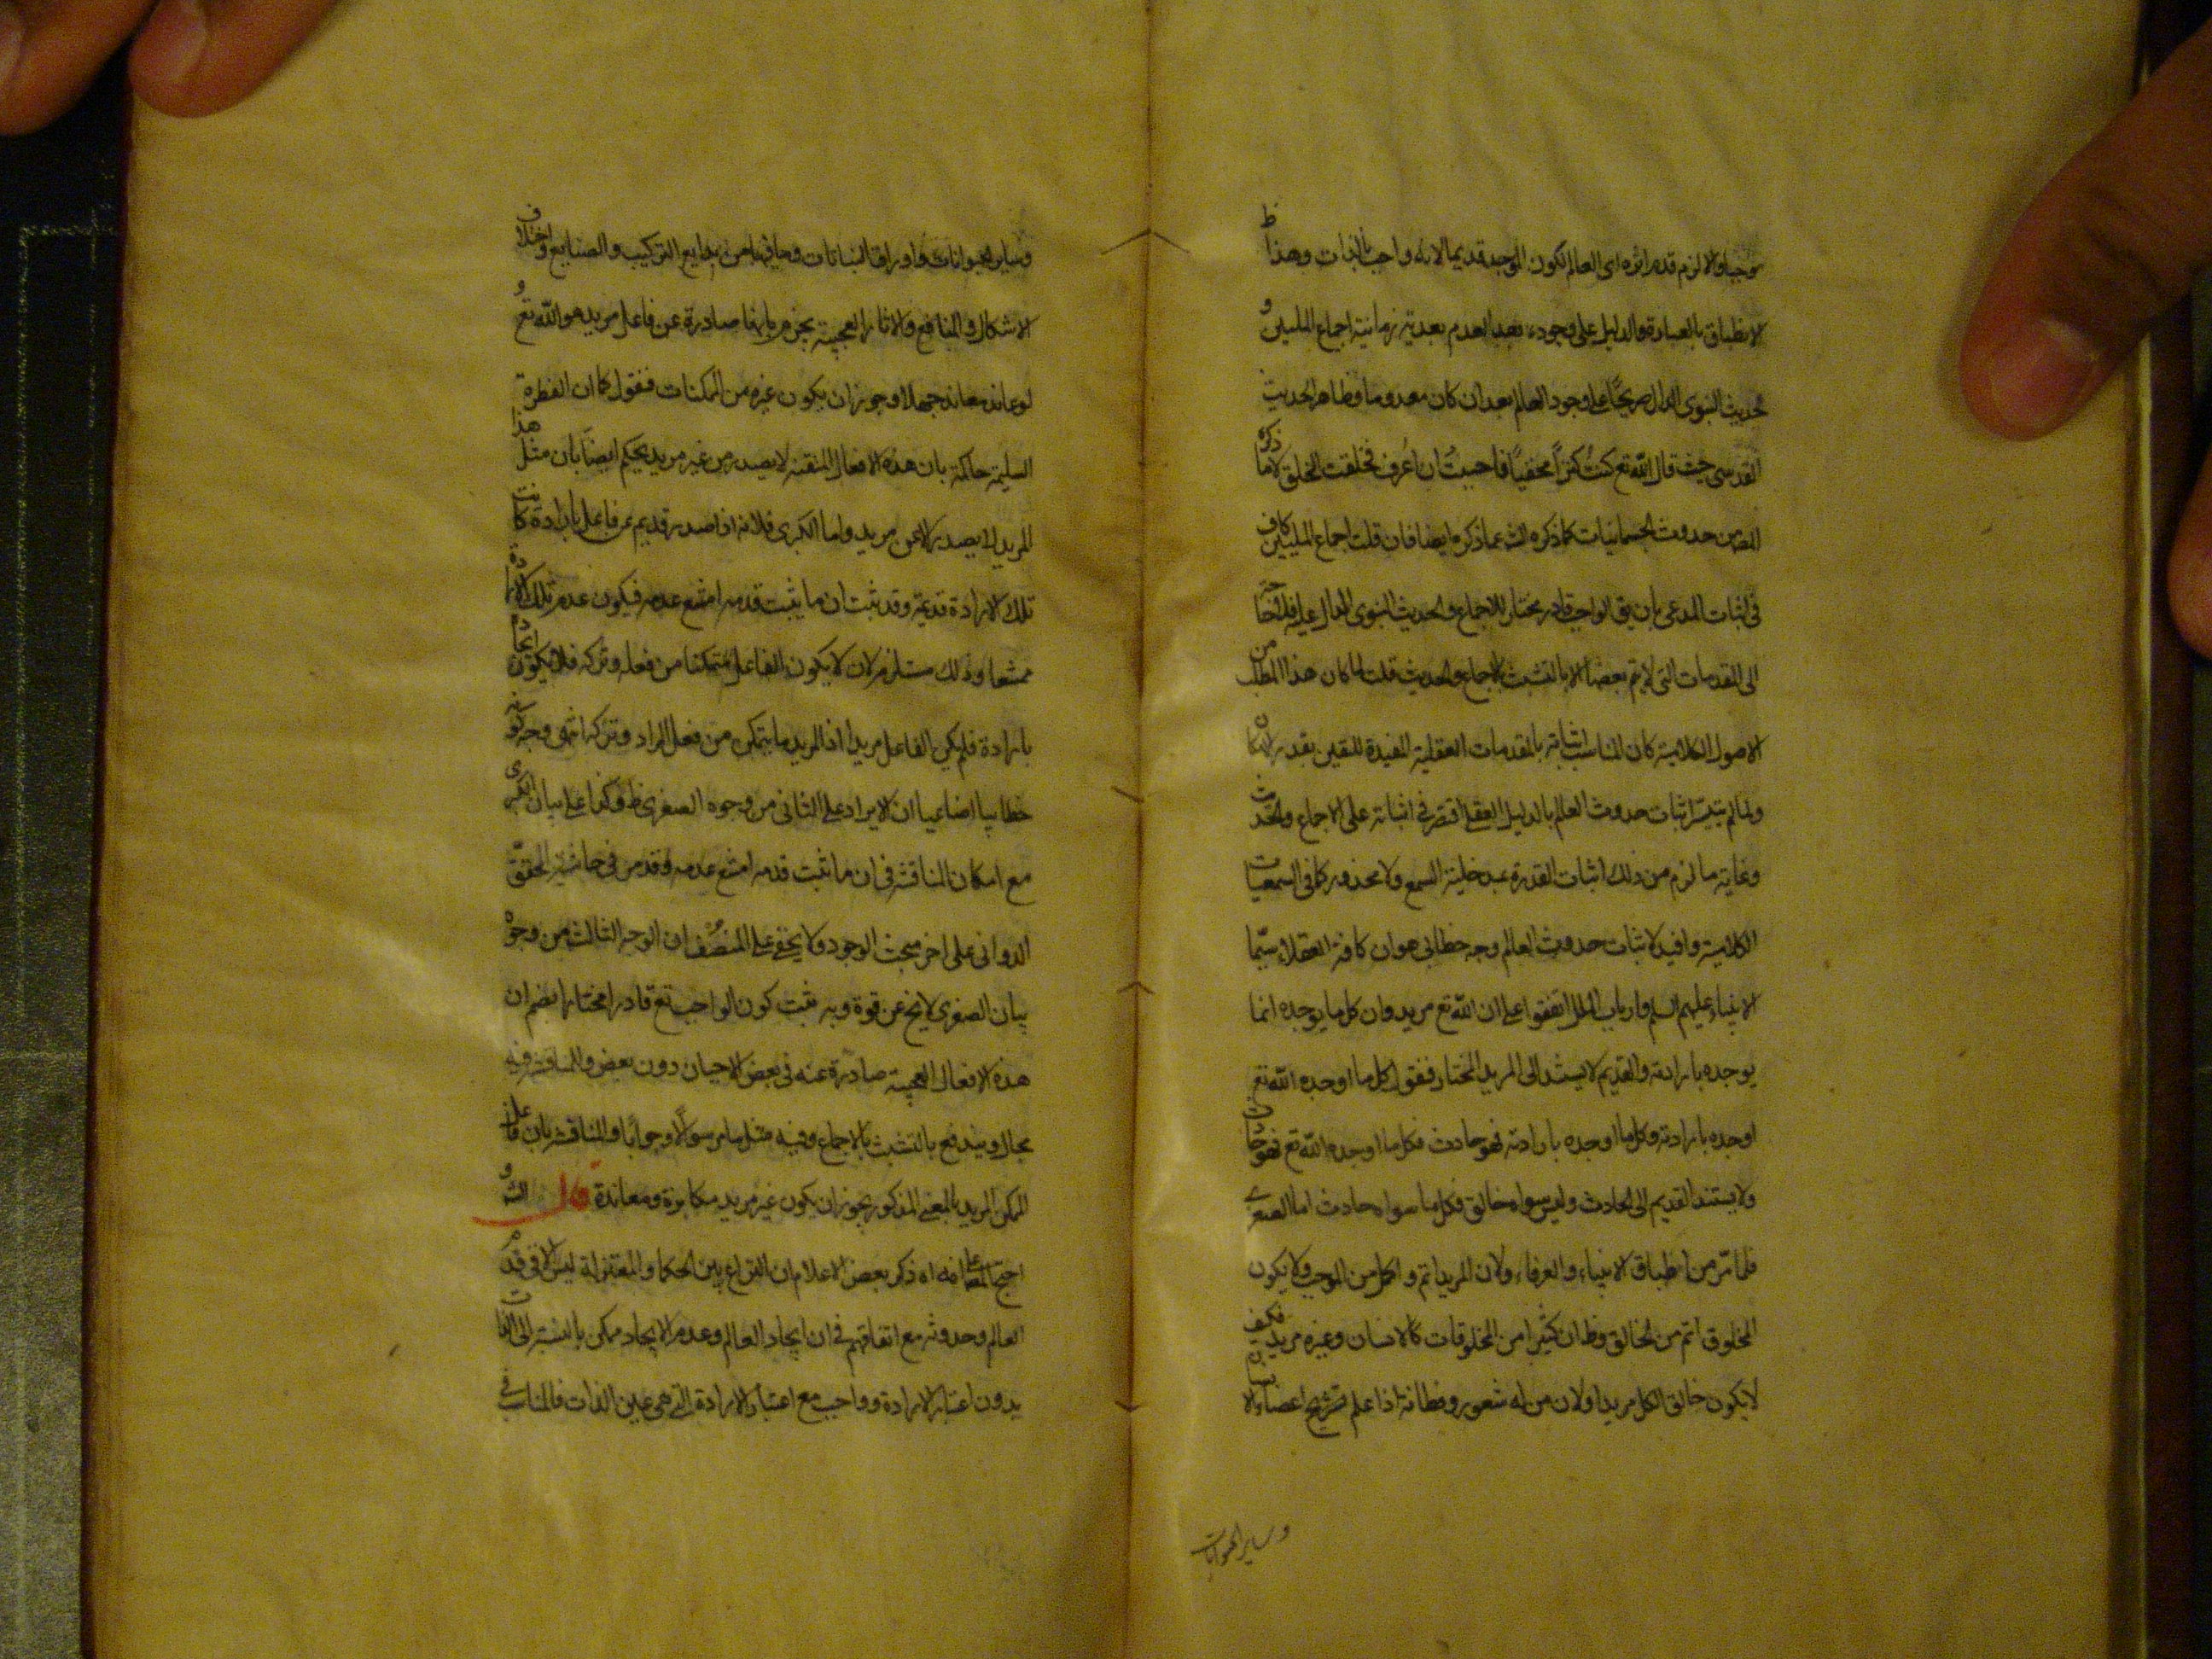 موجبا والا لزم قدم اثره اى العالم لكون الموجد قديما لانه واجب بالذات وهذا ظ
الانطباق بالعبارة والدليل على وجوده بعد العدم بعدية زمانية اجماع المليين و
الحديث النبوى الدال صريحا على وجود العالم بعد ان كان معدوما وظاهر الحديث
القدسى حيث قال الله تع كنتُ كنزاً مخفياً فاحببتُ ان اُعرف فخلقت الخلق لا ما ذكره
المص من حدوث الجسمانيات كما ذكره الشه عما ذكره ايضا فان قلت اجماع المليين كاف
فى اثبات المدعى بان يق الواجب قادر مختار للاجماع والحديث النبوى الدال عليه فلا حاجة
الى المقدمات التى لا يتم بعضها الا بالتشبث بالاجماع والحديث قلت لما كان هذا المطلب من
الاصول الكلامية كان المناسب اثباته بالمقدمات العقلية المفيدة لليقين بقدر الامكان
ولما لم يتيسر اثبات حدوث العالم بالدليل العقلى اقتصر فى اثباته على الاجماع والحديث
وغاية ما لزم من ذلك اثبات القدرة عبد خلية السمع ولا محذور كما فى السمعيات
الكلامية وافيد لاثبات حدوث العالم وجه خطابى هو ان كافة العقلاء سيّما
الانبياء عليهم السلم وارباب الملل اتفقوا على ان الله تع مريد وان كل ما يوجده انما
يوجده بارادته والقديم لا يستند الى المريد المختار فنقول كل ما اوجده الله تع
اوجده بارادته وكل ما اوجده بارادته فهو حادث فكل ما اوجده الله تع فهو حادث
ولا يستند القديم الى الحادث وليس سواه خالق فكل ما سواه حادث اما الصغرى
فلما مرّ من اطباق الانبياء والعرفاء ولان المريد اتم واكمل من الموجب ولا يكون
المخلوق اتم من الخالق وظ ان كثيرا من المخلوقات كالانسان وغيره مريد فكيف
لا يكون خالق الكل مريدا ولان من له شعور وفطانة اذا علم تشريح اعضاء الانسان
وساير الحيوانات
وساير الحيوانات واوراق النباتات وما فيها من بدايع التركيب والصنايع واختلاف
الاشكال والمنافع والاثار العجيبة يجزم بانها صادرة عن فاعل مريد هو الله تع و
لو عاند معاند جهلا وجوز ان يكون غيره من الممكنات فنقول كما ان الفطرة
السليمة حاكمة بان هذه الافعال المتقنة لا يصدر من غير مريد يحكم ايضا بان مثل هذا
المريد لا يصدر الا عن مريد واما الكبرى فلانه اذا صدر قديم عن فاعل بارادة كانت
تلك الارادة قديمة وقد ثبت ان ما يثبت قدمه امتنع عدمه فيكون عدم تلك الارادة
ممتنعا وذلك مستلزم لان لا يكون الفاعل متمكنا من فعله وتركه فلا يكون ايجاده
بارادة فلم يكن الفاعل مريدا اذ المريد ما يتمكن من فعل المراد وتركه انتهى وجه كونه
خطابيا اضاعيا ان الايراد على الثانى من وجوه الصغرى ظ وكذا على بيان الكبرى
مع امكان المناقشة فى ان ما ثبت قدمه امتنع عدمه وقد مر فى حاشية المحقق
الدوانى على اخر مبحث الوجود ولا يخفى على المنصف ان الوجه الثالث من وجوه
بيان الصغرى لا يخ عن قوة وبه يثبت كون الواجب تع قادرا مختارا بضم ان
هذه الافعال العجيبة صادرة عنه فى بعض الاحيان دون بعض والمناقشة فيه
مجال ويندفع بالتشبث بالاجماع وفيه مثل ما مر سوالاً وجواباً والمناقشة بان فاعل
الممكن المريد بالمعنى المذكور يجوز ان يكون غير مريد مكابرة ومعاندة قال الشه و
احتج الحكماء انه اه ذكر بعض الاعلام ان النزاع بين الحكما والمعتزلة ليس الا فى قدم
العالم وحدوثه مع اتفاقهم فى ان ايجاد العالم وعدم الايجاد ممكن بالنسبة الى الذات
بدون اعتبار الارادة وواجب مع اعتبار الارادة التى هى عين الذات فالمناسب فى